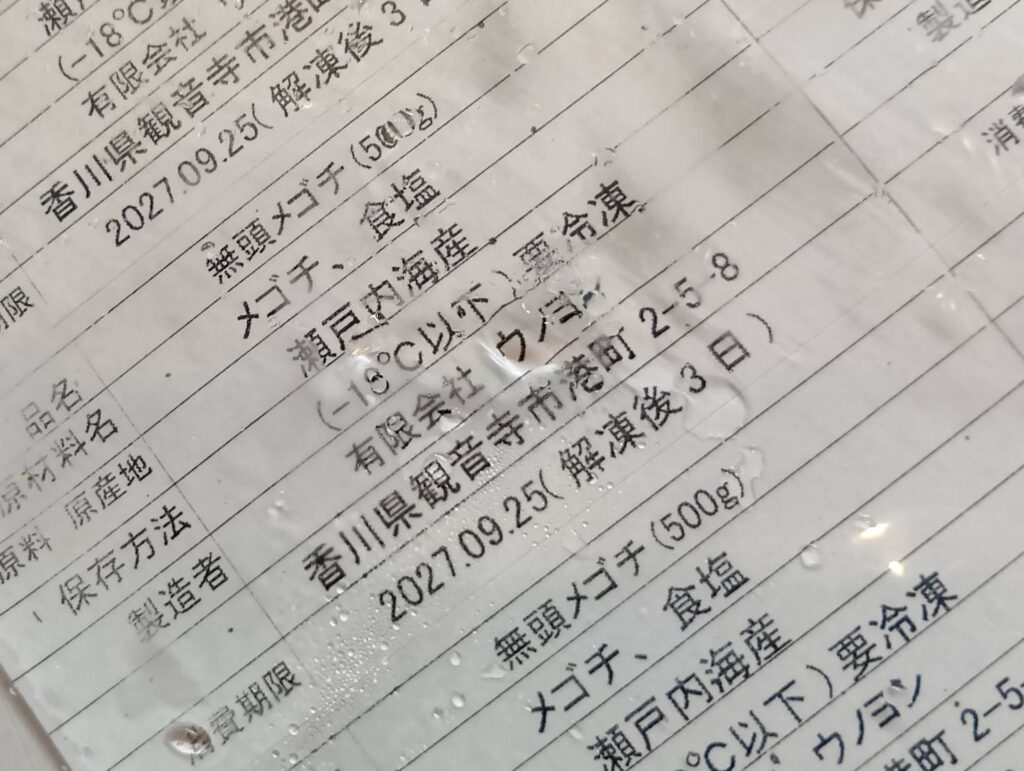 瀬戸
(-18℃以
有限会社
香川県観音寺市港町
2027.09.25(解凍後3日
期限
品名 無頭メゴチ(500g)
原材料名 メゴチ、 食塩
原料 原産地 瀬戸内海産
保存方法 (-18℃以下)要冷凍
製造者 有限会社 ウノヨン
香川県観音寺市港町 2-5-8
消費期限 2027.09.25(解凍後3日)
無頭メゴチ(500g)
メゴチ、 食塩
瀬戸内海産
℃以下)要冷凍
ウノヨン
港町 2-5-
保
製造
消費